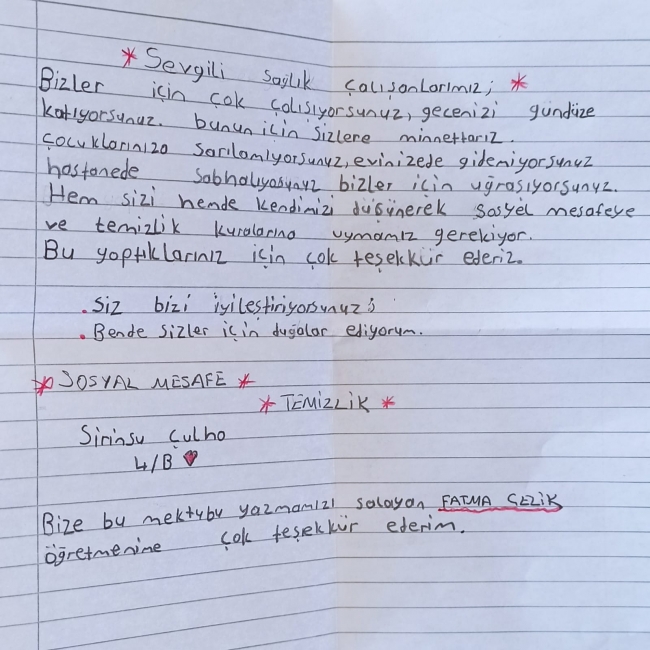 * Sevgili Sağlık Çalışanlarımız; *
Bizler için çok çalışıyorsunuz, gecenizi gündüze
katıyorsunuz. bunun için sizlere minnettarız.
Çocuklarınıza sarılamıyorsunuz, evinizede gidemiyorsunuz
hastanede sabhalıyosunuz bizler için uğraşıyorsunuz.
Hem sizi hemde kendimizi düşünerek sosyel mesafeye
ve temizlik kuralarına uymamız gerekiyor.
Bu yaptıklarınız için çok teşekkür ederiz.
. Siz bizi iyileştiriyorsunuz;
. Bende sizler için duğalar ediyorum.
* SOSYAL MESAFE *
* TEMİZLİK *
Sirinsu Çulha
4/B ♥
Bize bu mektubu yazmamızı salayan FATMA ÇELİK
öğretmenime çok teşekkür ederim.